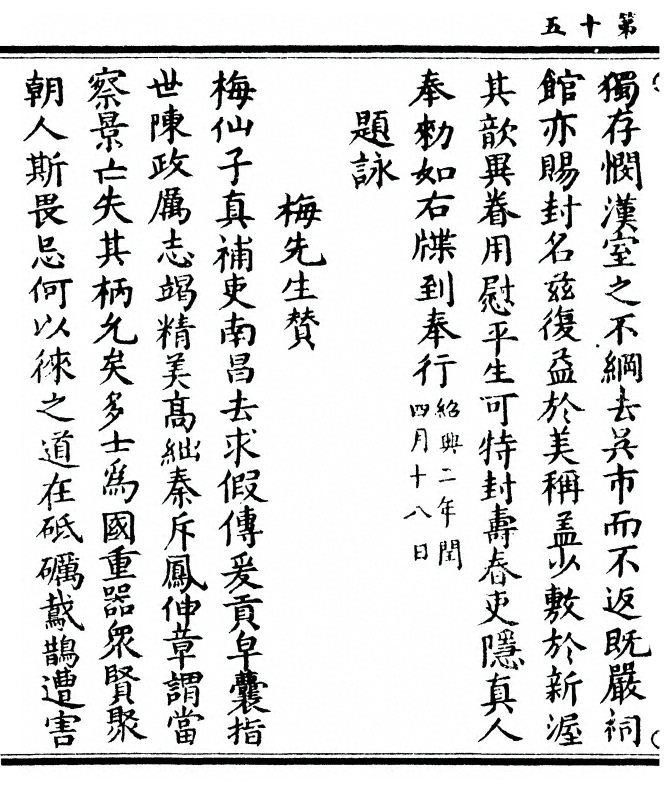 第十五
獨存憫漢室之不綱去吳市而不返既嚴祠
館亦賜封名兹復益於美稱盖少敷於新渥
其歆異眷用慰平生可特封壽春吏隱真人
奉勑如右牒到奉行紹興二年閏四月十八日
題詠
梅先生贊
梅仙子真補吏南昌去求假傳爰貢皁囊指
世陳政厲志竭精美高絀秦斥鳳伸章謂當
察景亡失其柄允矣多士為國重器衆賢聚
朝人斯畏忌何以徠之道在砥礪鳶鵲遭害